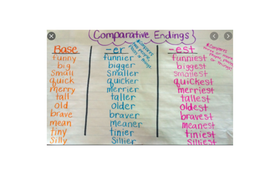 Comparative Endings
Base -er -est
funny funnier funniest
big bigger biggest
small smaller smallest
quick quicker quickest
merry merrier merriest
tall taller tallest
old older oldest
brave braver bravest
mean meaner meanest
tiny tinier tiniest
silly sillier silliest